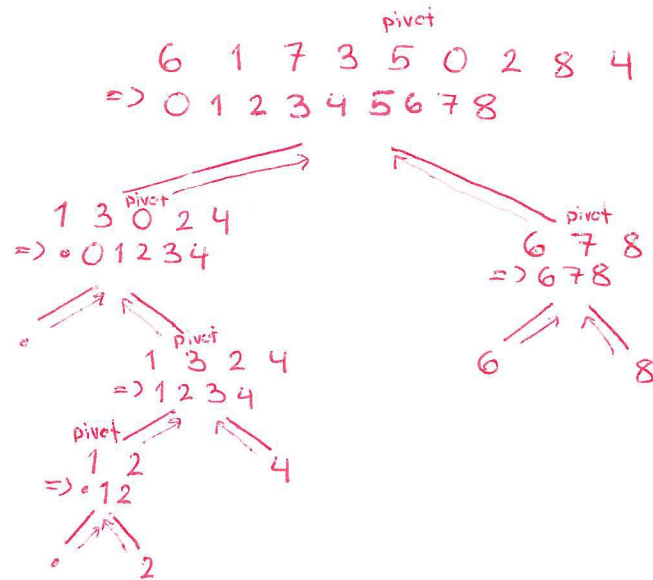 pivot
6 1 7 3 5 0 2 8 4
=> 0 1 2 3 4 5 6 7 8
pivot
1 3 0 2 4
=> • 0 1 2 3 4
pivot
6 7 8
=> 6 7 8
•
pivot
1 3 2 4
=> 1 2 3 4
6
8
pivot
1 2
=> • 1 2
4
•
2